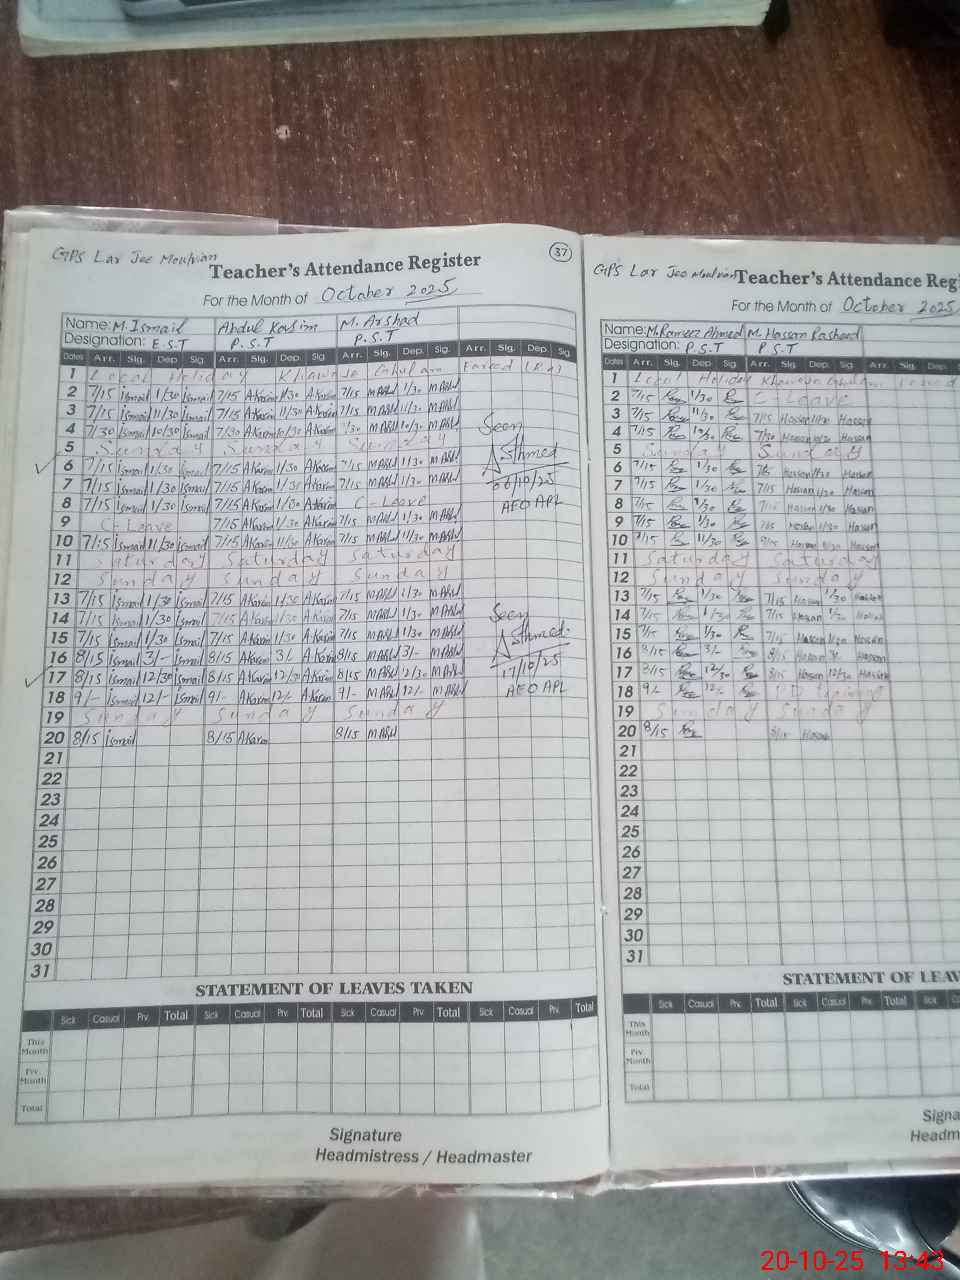 GPS Lar Jee Moulvian
37
Teacher's Attendance Register
For the Month of October 2025
Name: M. Ismail Abdul Kasim M. Arshad
Designation: E.S.T P.S.T P.S.T
Dates Arr. Sig. Dep. Sig. Arr. Sig. Dep. Sig Arr. Sig. Dep. Sig. Arr. Sig. Dep. Sig.
1 Local Holiday Khawaja Ghulam Fareed
2 7/15 ismail 1/30 ismail 7/15 AKasim 1/30 AKasim 7/15 MARsh 1/30 MARsh
3 7/15 ismail 11/30 ismail 7/15 AKasim 11/30 AKasim 7/15 MARsh 11/30 MARsh
4 7/30 ismail 10/30 ismail 7/30 AKasim 10/30 AKasim 7/30 MARsh 10/30 MARsh
5 Sunday Sunday Sunday
6 7/15 ismail 1/30 ismail 7/15 AKasim 1/30 AKasim 7/15 MARsh 1/30 MARsh
7 7/15 ismail 1/30 ismail 7/15 AKasim 1/30 AKasim 7/15 MARsh 1/30 MARsh
8 7/15 ismail 1/30 ismail 7/15 AKasim 1/30 AKasim C-Leave
9 C-Leave 7/15 AKasim 1/30 AKasim 7/15 MARsh 1/30 MARsh
10 7/15 ismail 11/30 ismail 7/15 AKasim 11/30 AKasim 7/15 MARsh 11/30 MARsh
11 Saturday Saturday Saturday
12 Sunday Sunday Sunday
13 7/15 ismail 1/30 ismail 7/15 AKasim 1/30 AKasim 7/15 MARsh 1/30 MARsh
14 7/15 ismail 1/30 ismail 7/15 AKasim 1/30 AKasim 7/15 MARsh 1/30 MARsh
15 7/15 ismail 1/30 ismail 7/15 AKasim 1/30 AKasim 7/15 MARsh 1/30 MARsh
16 8/15 ismail 3/- ismail 8/15 AKasim 3/- AKasim 8/15 MARsh 3/- MARsh
17 8/15 ismail 12/30 ismail 8/15 AKasim 12/30 AKasim 8/15 MARsh 12/30 MARsh
18 9/- ismail 12/- ismail 9/- AKasim 12/- AKasim 9/- MARsh 12/- MARsh
19 Sunday Sunday Sunday
20 8/15 ismail 8/15 AKasim 8/15 MARsh
21
22
23
24
25
26
27
28
29
30
31
Seen
06/10/25
AEO APL
Seen
17/10/25
AEO APL
STATEMENT OF LEAVES TAKEN
Sick Casual Prv. Total Sick Casual Prv. Total Sick Casual Prv. Total Sick Casual Prv. Total
This Month
Prv. Month
Total
Signature
Headmistress / Headmaster
GPS Lar Jee Moulvian
Teacher's Attendance Regi
For the Month of October 2025
Name: M. Rameez Ahmed M. Hassan Rasheed
Designation: P.S.T P.S.T
Dates Arr. Sig. Dep Sig. Arr. Sig. Dep. Sig Arr. Sig. Dep.
1 Local Holiday Khawaja Ghulam
2 7/15 1/30 C-Leave
3 7/15 11/30 7/15 Hassan 11/30 Hassan
4 7/15 10/30 7/30 Hassan 10/30 Hassan
5 Sunday Sunday
6 7/15 1/30 7/15 Hassan 1/30 Hassan
7 7/15 1/30 7/15 Hassan 1/30 Hassan
8 7/15 1/30 7/15 Hassan 1/30 Hassan
9 7/15 1/30 7/15 Hassan 1/30 Hassan
10 7/15 11/30 Hassan 11/30 Hassan
11 Saturday Saturday
12 Sunday Sunday
13 7/15 1/30 7/15 Hassan 1/30 Hassan
14 7/15 1/30 7/15 Hassan 1/30 Hassan
15 7/15 1/30 7/15 Hassan 1/30 Hassan
16 8/15 3/- 8/15 Hassan 3/- Hassan
17 8/15 12/30 8/15 Hassan 12/30 Hassan
18 9/- 12/-
19 Sunday Sunday
20 8/15 8/15 Hassan
21
22
23
24
25
26
27
28
29
30
31
STATEMENT OF LEAV
Sick Casual Prv. Total Sick Casual Prv. Total Sick
This Month
Prv. Month
Total
Signa
Headm
20-10-25 13:43